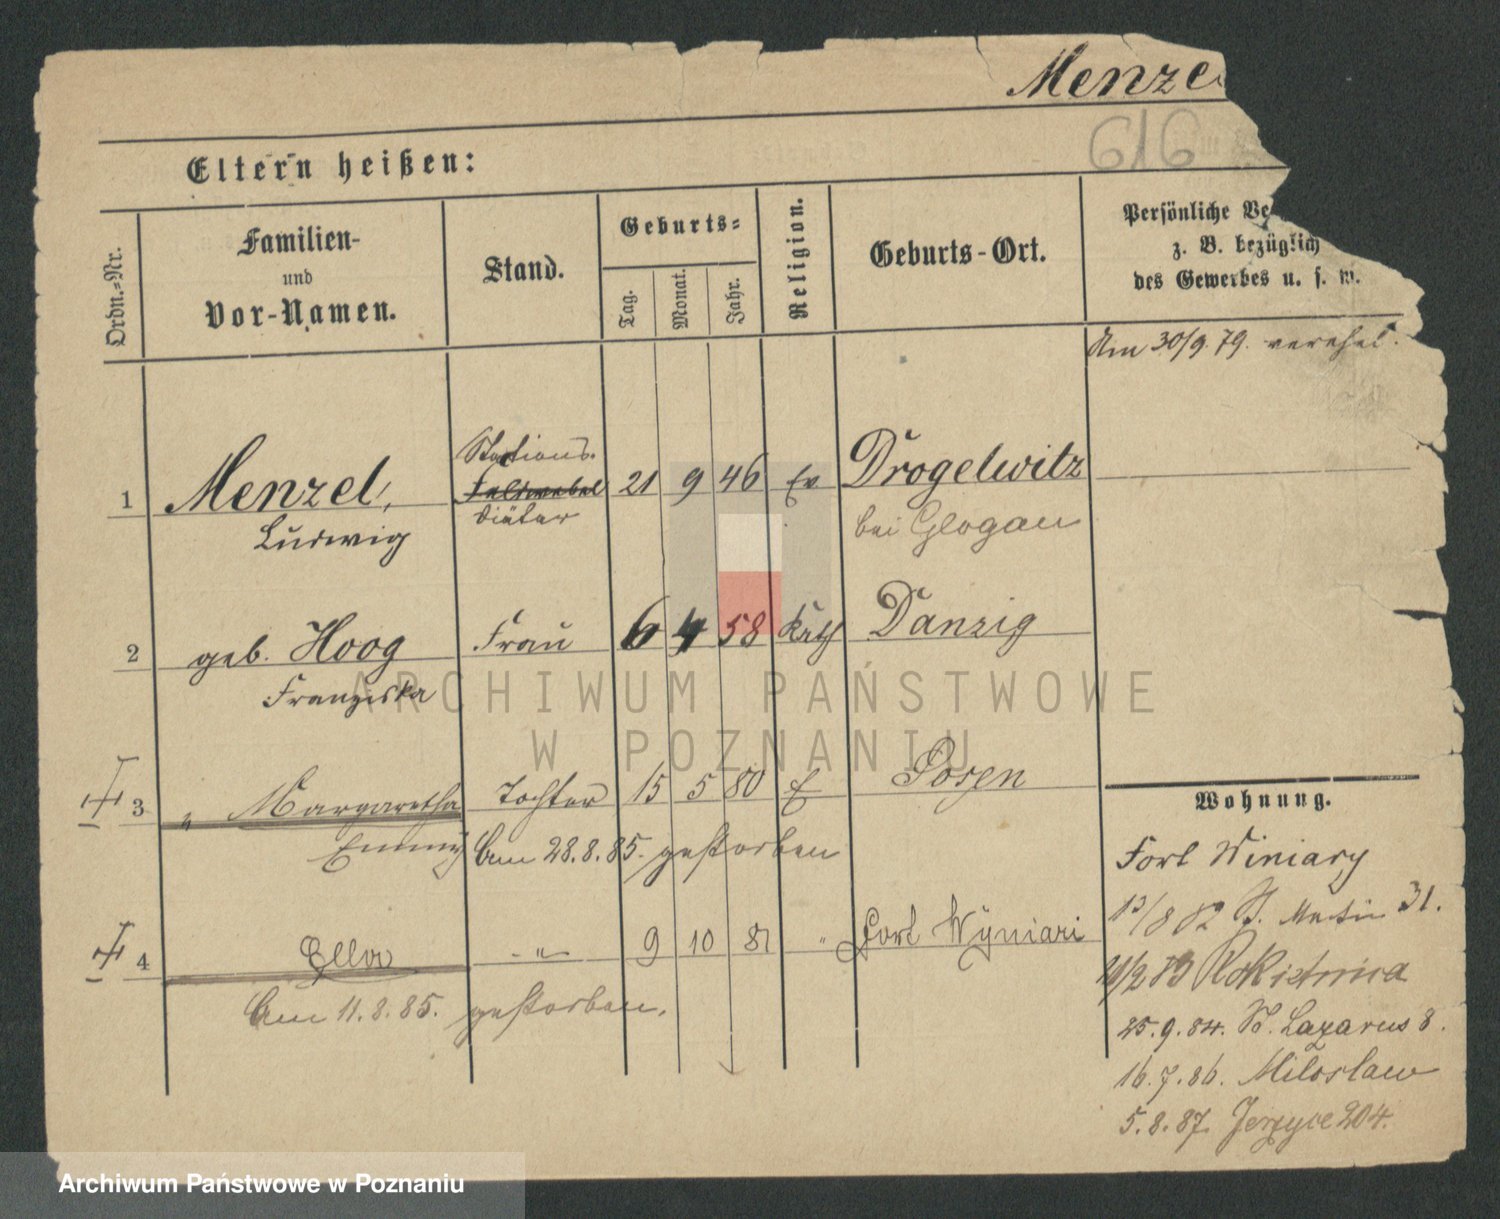 Menze
616
Eltern heißen:
Ordn.=Nr.
Familien-
und
Vor-Namen.
Stand.
Geburts=
Tag.
Monat.
Jahr.
Religion.
Geburts-Ort.
Persönliche Ve
z. B. bezüglich
des Gewerbes u. s. w.
Am 30/9. 79. verehel.
1 Menzel, Stations. Feldwebel diätar 21 9 46 Ev Drogelwitz
Ludwig bei Glogau
2 geb. Hoog Frau 6 4 58 Kath Danzig
Franziska
3 " Margaretha Tochter 15 5 80 E Posen
Emmy Am 28.8.85. gestorben
4 Ella " 9 10 81 " Fort Wyniari
Am 11.8.85. gestorben.
Wohnung.
Fort Winiary
13/8 82 St. Martin 31.
2 83 Rokietnica
25.9.84. St. Lazarus 8.
16.7.86. Miloslaw
5.8.87. Jerzyce 204.
ARCHIWUM PAŃSTWOWE
W POZNANIU
Archiwum Państwowe w Poznaniu